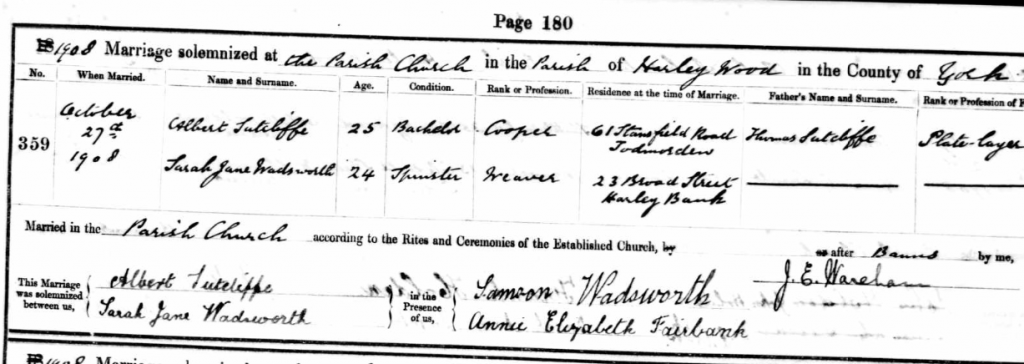 Page 180
1908 Marriage solemnized at the Parish Church in the Parish of Harley Wood in the County of York
No. When Married. Name and Surname. Age. Condition. Rank or Profession. Residence at the time of Marriage. Father's Name and Surname. Rank or Profession of
359 October 27th 1908 Albert Sutcliffe 25 Bachelor Cooper 61 Stansfield Road Todmorden Thomas Sutcliffe Plate-layer
Sarah Jane Wadsworth 24 Spinster Weaver 23 Broad Street Harley Bank
Married in the Parish Church according to the Rites and Ceremonies of the Established Church, by or after Banns by me,
J. E. Wareham
This Marriage was solemnized between us, Albert Sutcliffe in the Presence of us, Samson Wadsworth
Sarah Jane Wadsworth Annie Elizabeth Fairbank
1908